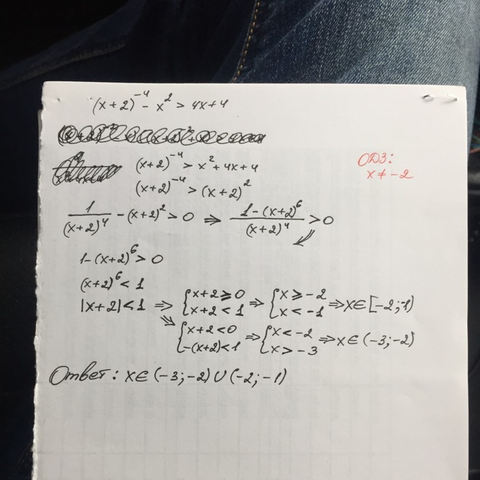 (x+2)⁻⁴ - x² > 4x+4
(x+2)⁻⁴ > x² + 4x + 4
ОДЗ:
x ≠ -2
(x+2)⁻⁴ > (x+2)²
1/(x+2)⁴ - (x+2)² > 0 ⇒ (1-(x+2)⁶)/(x+2)⁴ > 0
1-(x+2)⁶ > 0
(x+2)⁶ < 1
|x+2| < 1 ⇒ { x+2 ≥ 0 ; x+2 < 1 ⇒ { x ≥ -2 ; x < -1 ⇒ x ∈ [-2;-1)
⇒ { x+2 < 0 ; -(x+2) < 1 ⇒ { x < -2 ; x > -3 ⇒ x ∈ (-3;-2)
Ответ: x ∈ (-3;-2) ∪ (-2;-1)